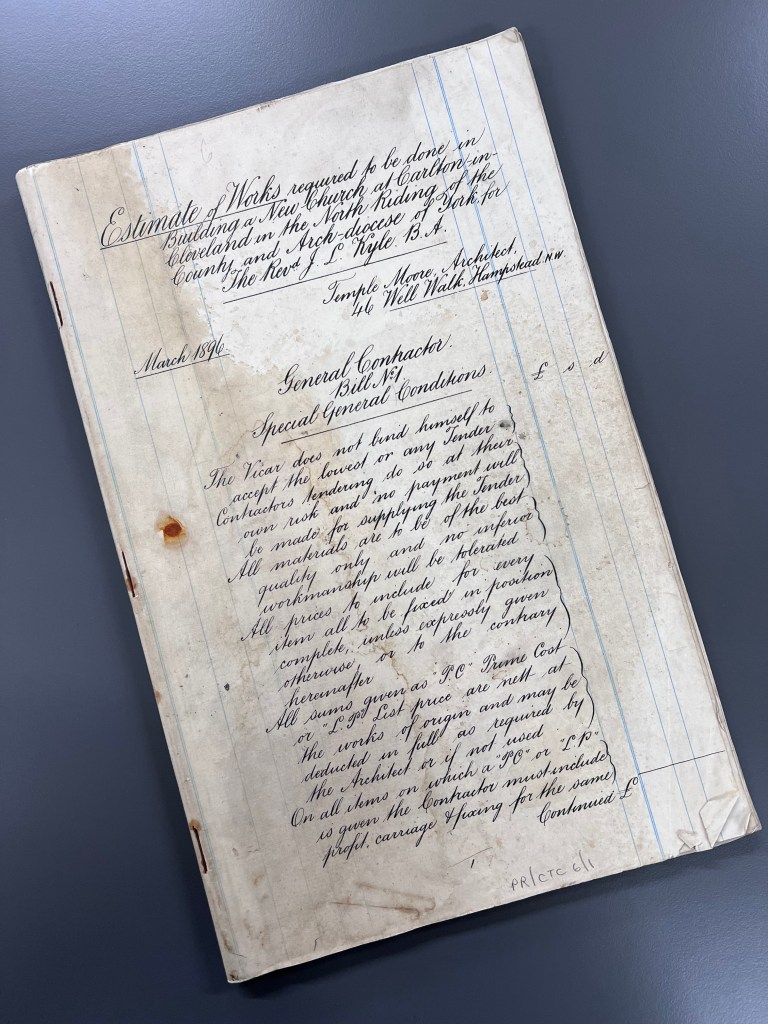 Estimate of Works required to be done in
Building a New Church at Carlton-in-
Cleveland in the North Riding of the
County and Arch-diocese of York, for
The Revd. J. L. Kyle. B.A.
Temple Moore, Architect,
46 Well Walk, Hampstead N.W.
March 1896
General Contractor.
Bill No. 1
Special General Conditions.
£ s d
The Vicar does not bind himself to
accept the lowest or any Tender
Contractors tendering do so at their
own risk and no payment will
be made for supplying the Tender
All materials are to be of the best
quality only and no inferior
workmanship will be tolerated
All prices to include for every
item all to be fixed in position
complete, unless expressly given
otherwise, or to the contrary
hereinafter
All sums given as "P.C" Prime Cost
or "L.P" List price are nett at
the works of origin and may be
deducted in full as required by
the Architect or if not used
On all items on which a "P.C" or "L.P"
is given the Contractor must include
profit, carriage & fixing for the same
Continued £
1
PR/CTC 6/1